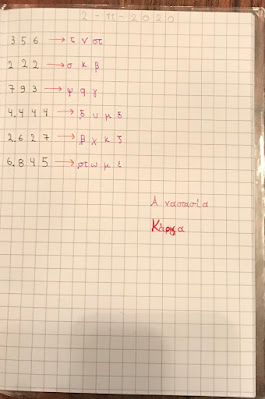 2-11-2020
356 → τ ν στ
222 → σ κ β
793 → ψ q γ
4.444 → δ υ μ δ
2.627 → β χ κ ζ
6.845 → στ ω μ ε
Αναστασία